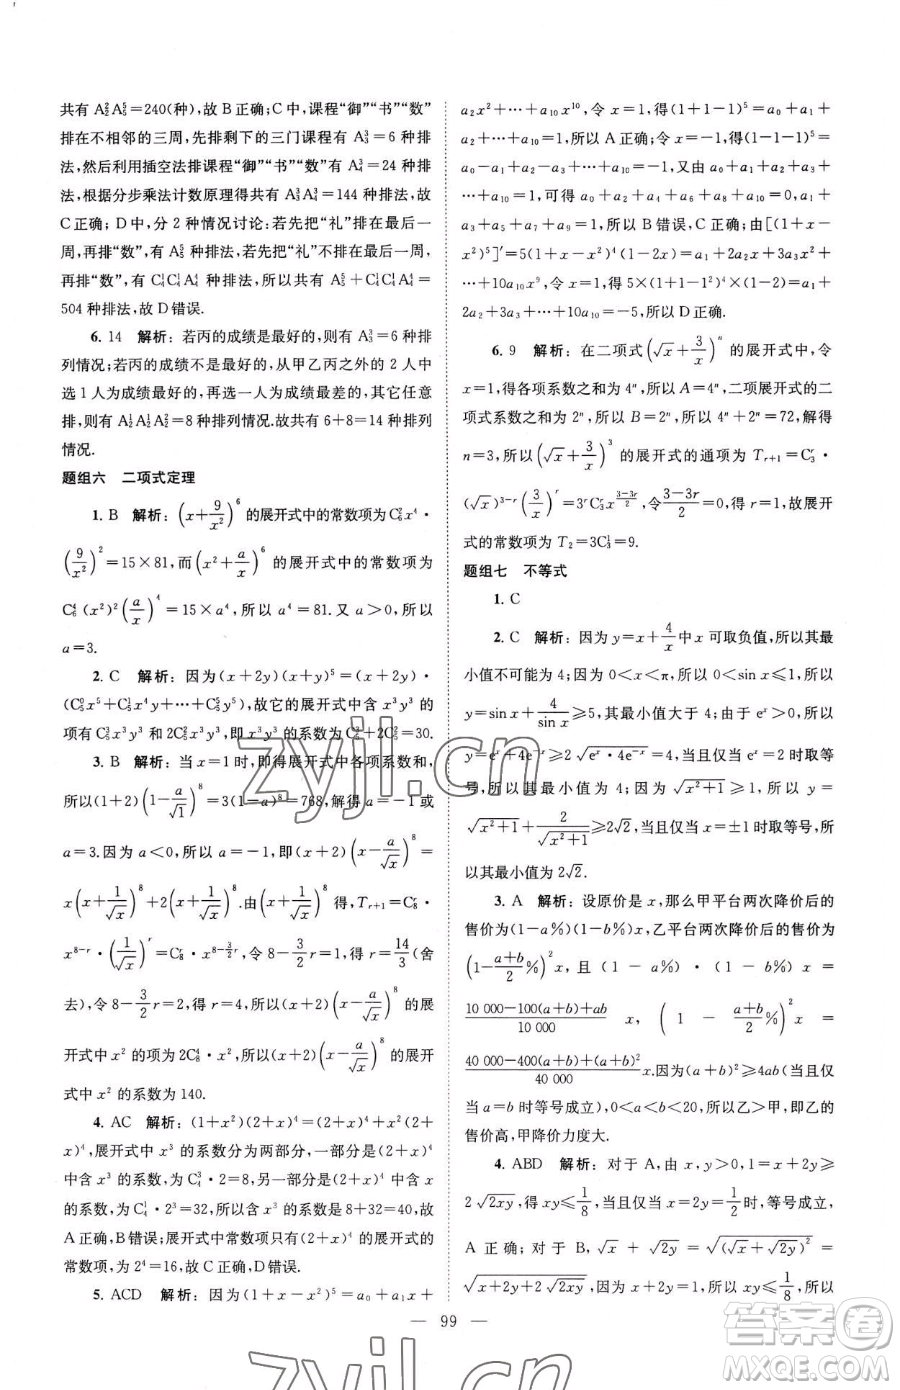 共有 A₂²A₅⁵=240(种),故 B 正确;C 中,课程“御”“书”“数”
排在不相邻的三周,先排剩下的三门课程有 A₃³=6 种排
法,然后利用插空法排课程“御”“书”“数”有 A₄³=24 种排
法,根据分步乘法计数原理得共有 A₃³A₄³=144 种排法,故
C 正确;D 中,分 2 种情况讨论:若先把“礼”排在最后一
周,再排“数”,有 A₅⁵ 种排法,若先把“礼”不排在最后一周,
再排“数”,有 C₄¹C₄¹A₄⁴ 种排法,所以共有 A₅⁵+C₄¹C₄¹A₄⁴=
504 种排法,故 D 错误.
6. 14 解析:若丙的成绩是最好的,则有 A₃³=6 种排
列情况;若丙的成绩不是最好的,从甲乙丙外的 2 人中
选 1 人为成绩最好的,再选一人为成绩最差的,其它任意
排,则有 A₂¹A₂¹A₂²=8 种排列情况.故共有 6+8=14 种排列
情况.
题组六 二项式定理
1. B 解析:(x+9/x²)⁶ 的展开式中的常数项为 C₆²x⁴·
(9/x²)²=15×81,而(x²+a/x)⁶ 的展开式中的常数项为
C₆⁴(x²)²(a/x)⁴=15×a⁴,所以 a⁴=81.又 a>0,所以
a=3.
2. C 解析:因为(x+2y)(x+y)⁵=(x+2y)·
(C₅⁰x⁵+C₅¹x⁴y+⋯+C₅⁵y⁵),故它的展开式中含 x³y³ 的
项有 C₅³x³y³ 和 2C₅²x³y³,即 x³y³ 的系数为 C₅³+2C₅²=30.
3. B 解析:当 x=1 时,得展开式中各项系数和,
所以(1+2)(1-a/√1)⁸=3(1-a)⁸=768,解得 a=-1 或
a=3.因为 a<0,所以 a=-1,即(x+2)(x-a/√x)⁸=
x(x+1/√x)⁸+2(x+1/√x)⁸.由(x+1/√x)⁸,得 Tᵣ₊₁=C₈ʳ·
x⁸⁻ʳ·(1/√x)ʳ=C₈ʳ·x^(8-3/2 r),令 8-3/2 r=1,得 r=14/3(舍
去),令 8-3/2 r=2,得 r=4,所以(x+2)(x-a/√x)⁸ 的展
开式中 x² 的项为 2C₈⁴·x²,所以(x+2)(x-a/√x)⁸ 的展开
式中 x² 的系数为 140.
4. AC 解析:(1+x²)(2+x)⁴=(2+x)⁴+x²(2+
x)⁴,展开式中 x³ 的系数分为两部分,一部分是(2+x)⁴
中含 x³ 的系数 C₄³·2=8,另一部分是(2+x)⁴ 中含 x 项
的系数为 C₄¹·2³=32,所以含 x³ 的系数是 8+32=40,故
A 正确,B 错误;展开式中常数项只有(2+x)⁴ 展开式的常
数项,为 2⁴=16,故 C 正确,D 错误.
5. ACD 解析:因为(1+x-x²)⁵=a₀+a₁x+
a₂x²+⋯+a₁₀x¹⁰,令 x=1,得(1+1-1)⁵=a₀+a₁+
a₂+⋯+a₁₀=1,所以 A 正确;令 x=-1,得(1-1-1)⁵=
a₀-a₁+a₂-⋯+a₁₀=-1,可得 a₀+a₂+a₄+a₆+a₈+a₁₀=0,a₁+
a₃+a₅+a₇+a₉=1,所以 B 错误,C 正确;由[(1+x-
x²)⁵]′=5(1+x-x²)⁴(1-2x)=a₁+2a₂x+3a₃x²+
⋯+10a₁₀x⁹,令 x=1,得 5×(1+1-1²)⁴×(1-2)=a₁+
2a₂+3a₃+⋯+10a₁₀=-5,所以 D 正确.
6. 9 解析:在二项式(√x+3/x)ⁿ 的展开式中,令
x=1,得各项系数之和为 4ⁿ,所以 A=4ⁿ,二项展开式的二
项式系数之和为 2ⁿ,所以 B=2ⁿ,所以 4ⁿ+2ⁿ=72,解得
n=3,所以(√x+3/x)³ 的展开式的通项为 Tᵣ₊₁=C₃ʳ·
(√x)³⁻ʳ(3/x)ʳ=3ʳC₃ʳx^((3-3r)/2),令(3-3r)/2=0,得 r=1,故展
开式的常数项为 T₂=3C₃¹=9.
题组七 不等式
1. C
2. C 解析:因为 y=x+4/x 中 x 可取负值,所以其最
小值不可能为 4;因为 0<x<π,所以 0<sin x≤1,所以
sin x+4/sin x≥5,其最小值大于 4;由于 eˣ>0,所以
y=eˣ+4e⁻ˣ≥2√(eˣ·4e⁻ˣ)=4,当且仅当 eˣ=2 时取等
号,所以其最小值为 4;因为√(x²+1)≥1,所以 y=
√(x²+1)+2/√(x²+1)≥2√2,当且仅当 x=±1 时取等号,所
以其最小值为 2√2.
3. A 解析:设原价是 x,那么甲平台两次降价后的
售价为(1-a%)(1-b%)x,乙平台两次降价后的售价为
(1-(a+b)/2 %)²x,且(1-a%)·(1-b%)x=
(10 000-100(a+b)+ab)/10 000 x,(1-(a+b)/2 %)²x=
(40 000-400(a+b)+(a+b)²)/40 000 x.因为(a+b)²≥4ab(当且
仅当 a=b 时等号成立),0<a<b<20,所以乙>甲,即乙的
售价高,甲降价力度大.
4. ABD 解析:对于 A,由 x,y>0,1=x+2y≥
2√(2xy),得 xy≤1/8,当且仅当 x=2y=1/2 时,等号成立,
A 正确;对于 B,√x+√(2y)=√((√x+√(2y))²)=
√(x+2y+2√(2xy)),因为 xy≤1/8,所以
— 99 —
zyjl.cn
zyjl.cn
答案圈
MXQE.COM